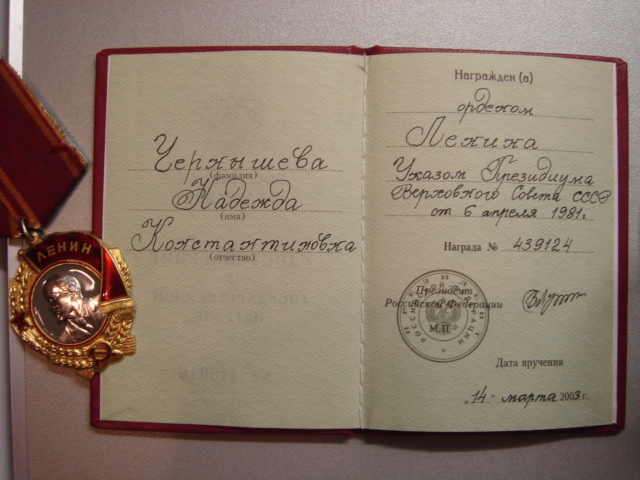 ЛЕНИН
Чернышева
(фамилия)
Надежда
(имя)
Константиновна
(отчество)
Награжден (а)
орденом
Ленина
Указом Президиума
Верховного Совета СССР
от 6 апреля 1981г.
Награда № 439124
Президент
Российской Федерации
М.П.
Дата вручения
„14" марта 2003 г.